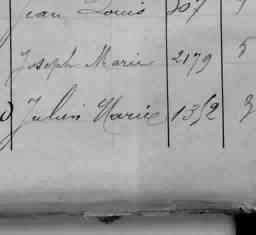 Jean Louis 307
Joseph Marie 2179 5
Julien Marie 1352 3